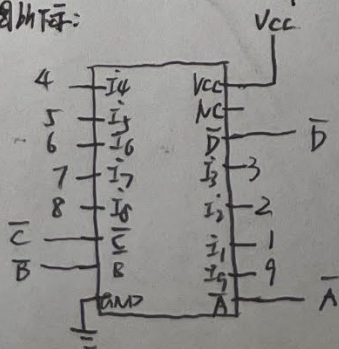 图如下示:
Vcc
4 I4 Vcc
5 I5 NC
6 I6 D̅ D̅
7 I7 I3 3
8 I8 I2 2
C̅ C̅ I1 1
B̅ B I9 9
GND A̅ A̅